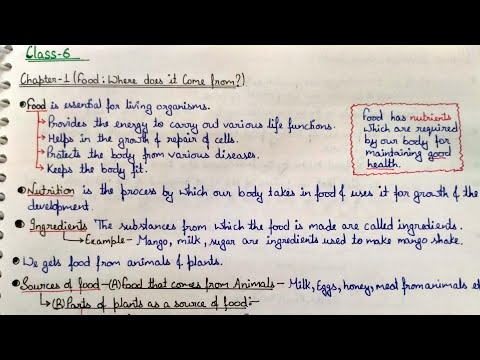 Class-6
Chapter-1 (Food: Where does it Come from?)
Food is essential for living organisms.
Provides the energy to carry out various life functions.
Helps in the growth & repair of cells.
Protects the body from various diseases.
Keeps the body fit.
Food has nutrients
which are required
by our body for
maintaining good
health.
Nutrition is the process by which our body takes in food & uses it for growth & the
development.
Ingredients The substances from which the food is made are called ingredients.
Example- Mango, milk, sugar are ingredients used to make mango shake.
We gets food from animals & plants.
Sources of food-(A) Food that comes from Animals- Milk, Eggs, honey, meat from animals et
(B) Parts of plants as a source of food:-